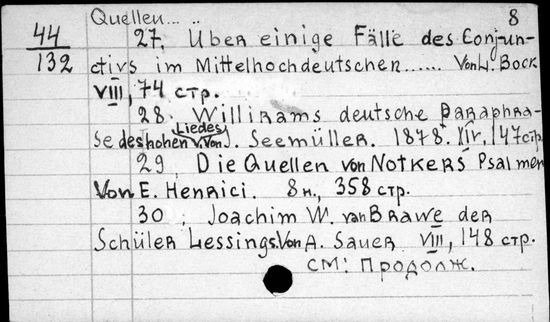 Quellen... .. 8
44 27. Über einige Fälle des Conjun-
132 ctivs im Mittelhochdeutschen...... Von L. Bock
VIII, 74 стр.
28. Willirams deutsche Paraphra-
se des hohen Liedes. Von J. Seemüller. 1878. XIV, 147 стр.
29. Die Quellen von Notkers Psalmen
Von E. Henrici. 8н., 358 стр.
30. Joachim W. van Brawe der
Schüler Lessings. Von A. Sauer VIII, 148 стр.
см: Продолж.